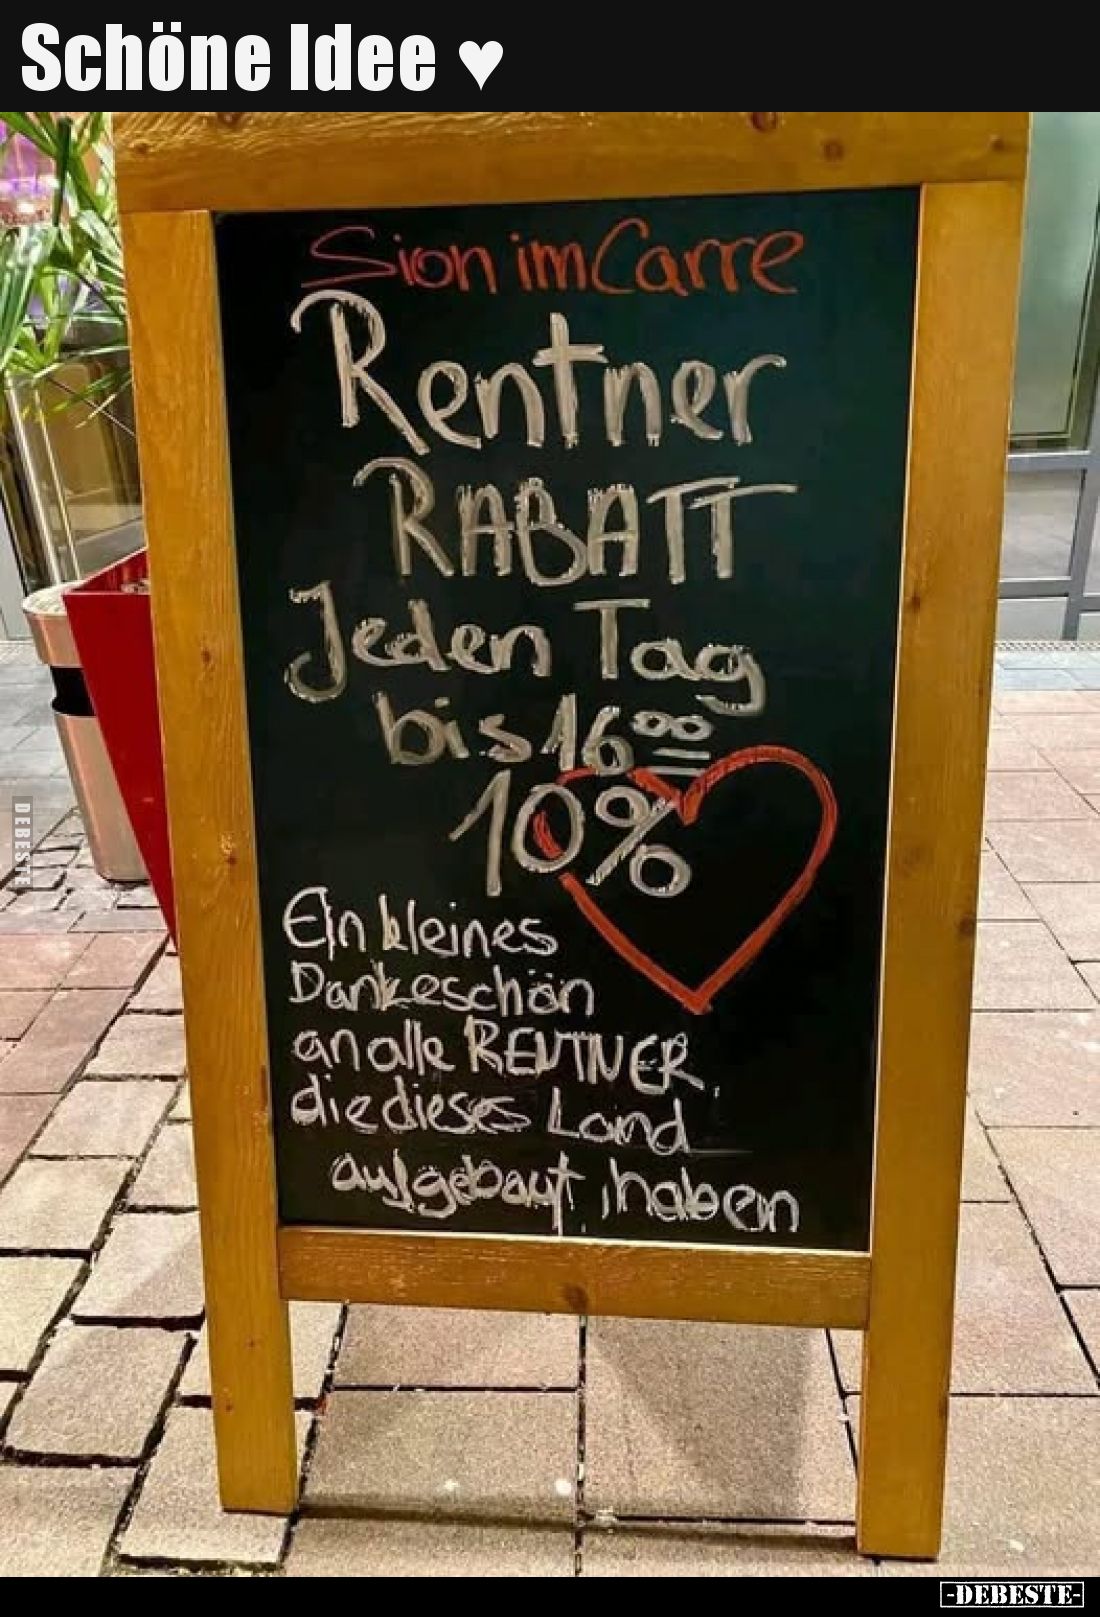 Schöne Idee ♥
Sion im Carre
Rentner
RABATT
Jeden Tag
bis 16 00
10%
Ein kleines
Dankeschön
an alle RENTNER,
die dieses Land
aufgebaut haben
DEBESTE
-DEBESTE-